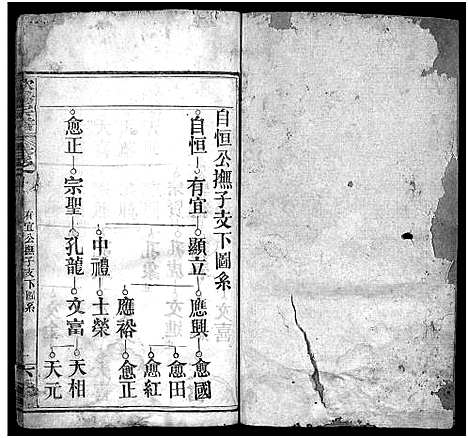 自恒公撫子支下圖系
自恒 有宜 顯立 應興 愈國
愈田
愈紅
應裕 愈正
中禮 士榮
愈正 宗聖 孔龍 文富 天相
天元
有宜公撫子支下圖系